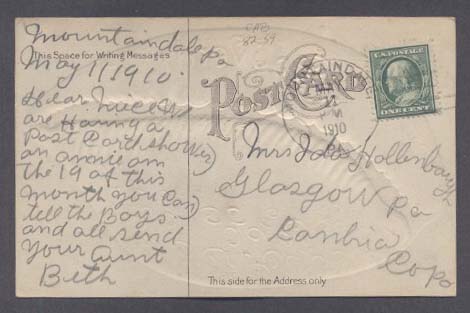 Mountaindale Pa
This Space for Writing Messages
May 11 1910.
Dear Niece W
are Having a
Post Card shower
on annie on
the 19 of this
month you Can
tell the Boys
and all send
your aunt
Beth
CAB
52-59
POST CARD
MAY
11
M
1910
PA.
U.S. POSTAGE
ONE CENT
Mrs Ida Hollenbaugh
Glasgow Pa
Canbria
Co Pa
This side for the Address only